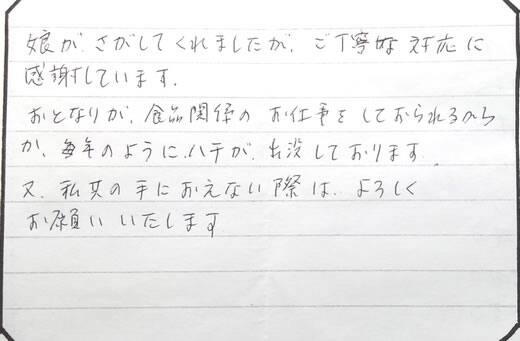 娘が、さがしてくれましたが、ご丁寧な対応に
感謝しています.
おとなりが、食品関係のお仕事をしておられるから
か、毎年のように、ハチが、出没しております.
又、私共の手におえない際は、よろしく
お願いいたします